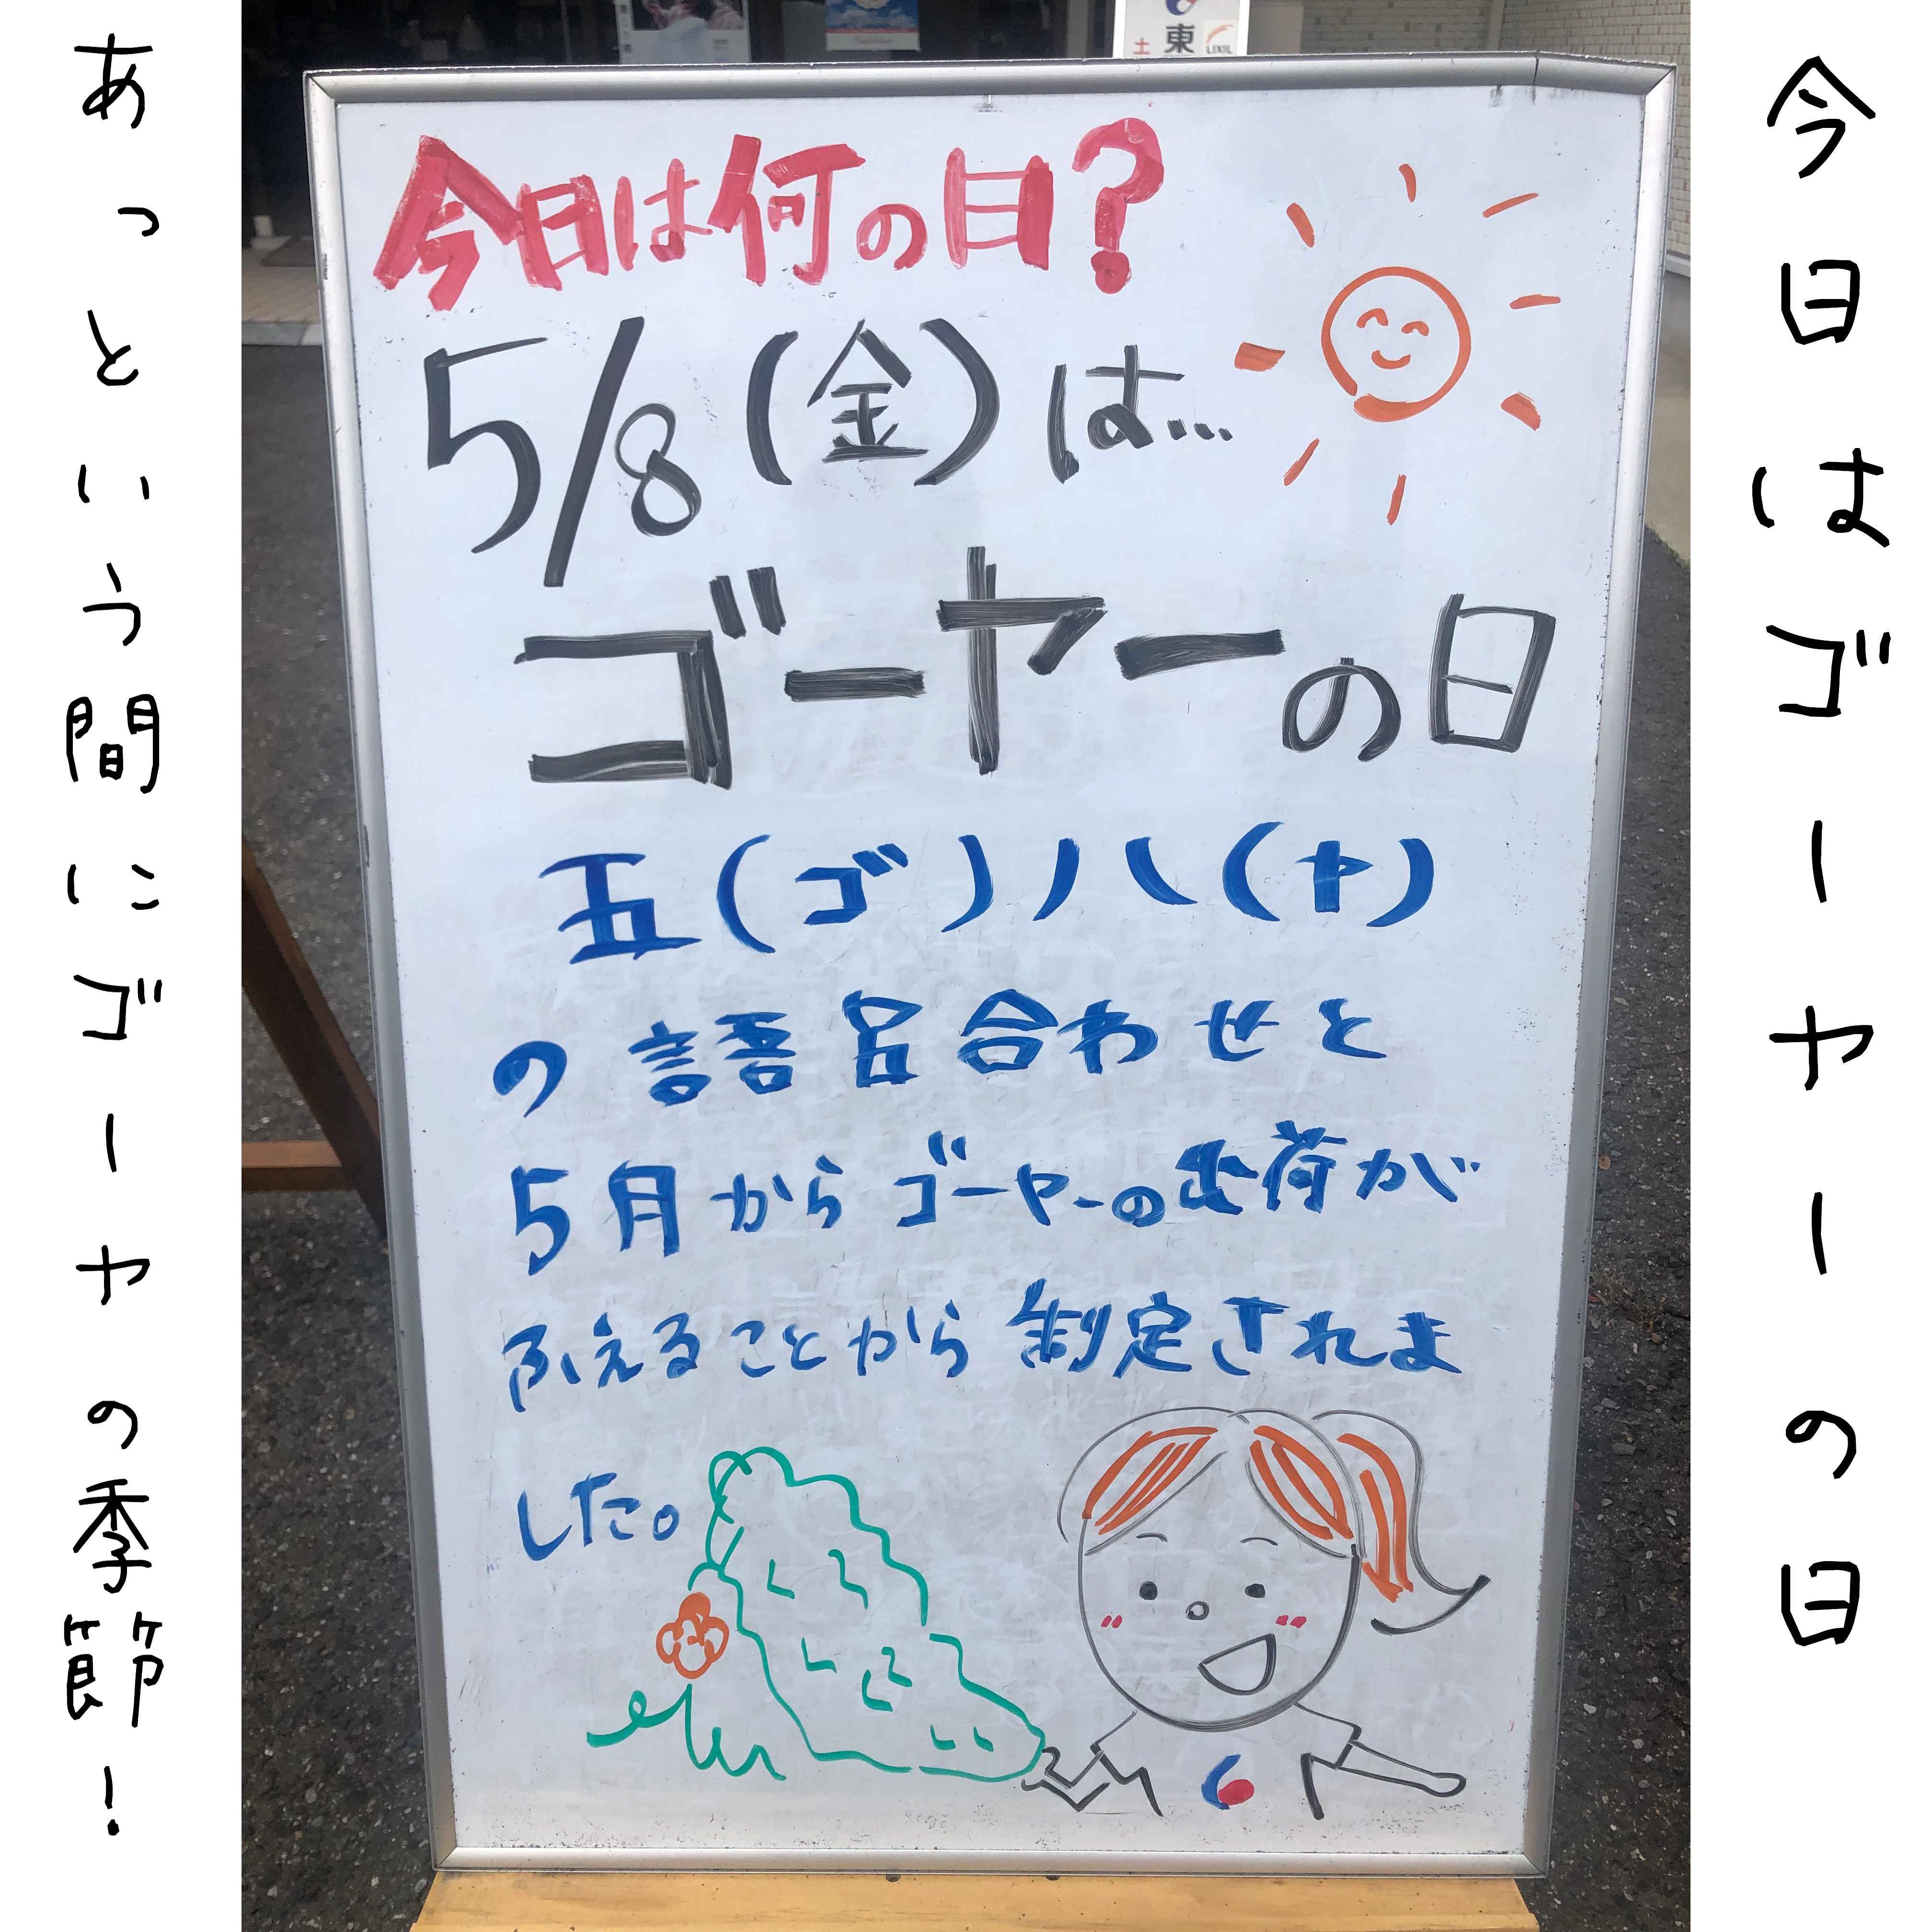 今日はゴーヤーの日
東
土
LIXIL
今日は何の日?
5/8(金)は...
ゴーヤーの日
五(ゴ)八(ヤ)
の語呂合わせと
5月からゴーヤーの出荷が
ふえることから制定されま
した。
あっという間にゴーヤの季節!